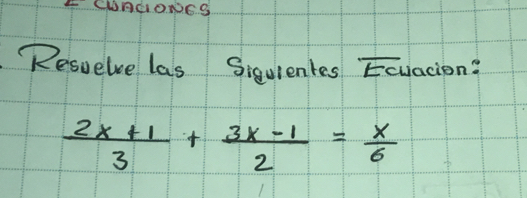 ECUACIONES
Resuelve las Siguientes Ecuacion:
2x+1/3 + 3x-1/2 = x/6